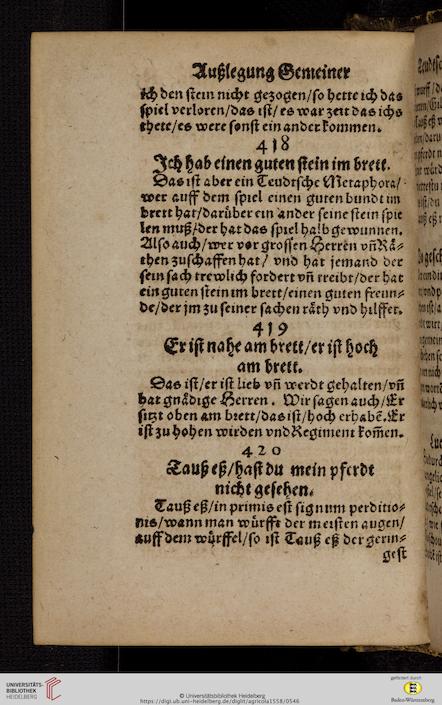 Außlegung Gemeiner
ich den stein nicht gezogen/so hette ich das
spiel verloren/das ist/es war zeit das ichs
thete/es were sonst ein ander kommen.
418
Jch hab einen guten stein im brett.
Das ist aber ein Teudtsche Metaphora/
wer auff dem spiel einen guten bundt im
brett hat/darüber ein ander seine stein spie
len muß/der hat das spiel halb gewunnen.
Also auch/wer vor grossen Herren vñ Rä-
then zuschaffen hat/ vnd hat jemand der
sein sach trewlich fordert vñ treibt/der hat
ein guten stein im brett/einen guten freun-
de/der jm zu seiner sachen räth vnd hilffet.
419
Er ist nahe am brett/er ist hoch
am brett.
Das ist/er ist lieb vñ werdt gehalten/vñ
hat gnädige Herren. Wir sagen auch/Er
sitzt oben am brett/das ist/hoch erhabē.Er
ist zu hohen wirden vnd Regiment kom̃en.
420
Tauß eß/hast du mein pferdt
nicht gesehen.
Tauß eß/in primis est signum perditio-
nis/wann man würffe der meisten augen/
auff dem würffel/so ist Tauß eß der gerin-
gest
UNIVERSITÄTS-
BIBLIOTHEK
HEIDELBERG
© Universitätsbibliothek Heidelberg
https://digi.ub.uni-heidelberg.de/diglit/agricola1558/0546
gefördert durch
Baden-Württemberg